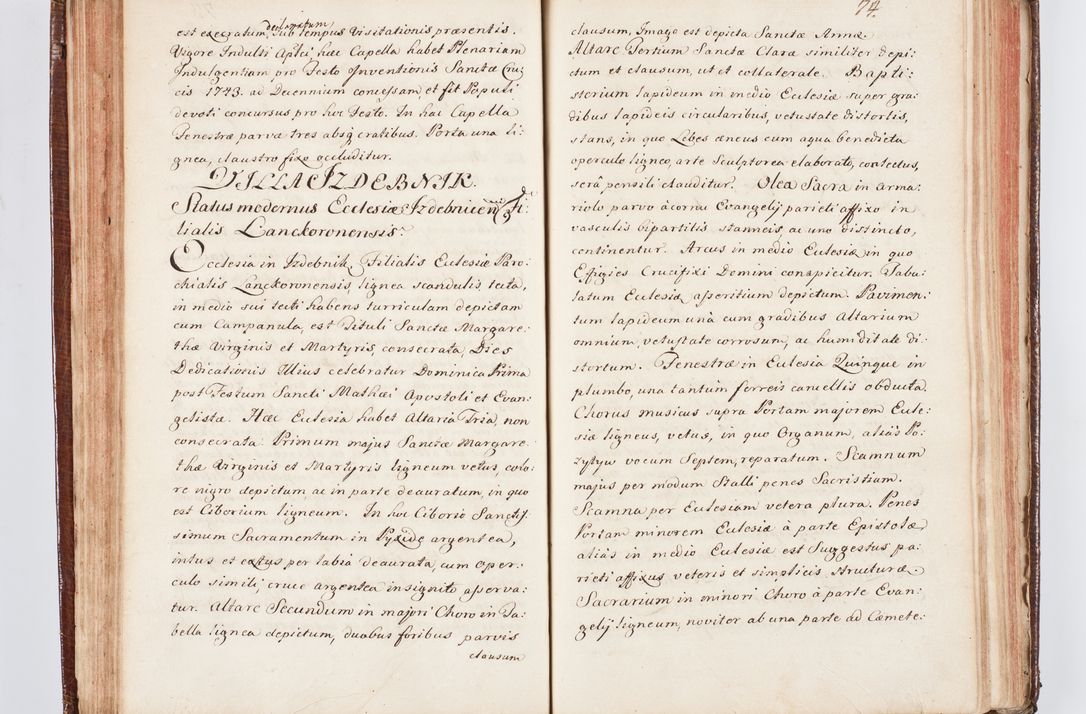 declaratum
est execratum, sub tempus Visitationis præsentis.
Vigore Indulti Aptci hæc Capella habet Plenariam
Indulgentiam pro Festo Inventionis Sanctæ Cru¸
cis 1743. ad Decennium concessam et fit Populi
devoti concursus pro hoc Festo. In hac Capella
Fenestræ parvæ tres absq cratibus. Porta una li¸
gnea, claustro fixo occluditur.
VILLA IZDEBNIK.
Status modernus Ecclesiæ Izdebnicen Fi:
lialis Lanckoronensis.
Ecclesia in Izdebnik, Filialis Ecclesiæ Paro:
chialis Lanckoronensis, lignea scandulis tecta,
in medio sui tecti habens turriculam depictam
cum Campanula, est Tituli Sanctæ Margare:
thæ Virginis et Martyris, consecrata, Dies
Dedicationis Illius celebratur Dominica Prima
post Festum Sancti Mathæi Apostoli et Evan:
gelistæ. Hæc Ecclesia habet Altaria Tria, non
consecrata. Primum majus Sanctæ Margare:
thæ Virginis et Martyris ligneum vetus, colo:
re nigro depictum ac in parte deauratum, in quo
est Ciborium ligneum. In hoc Ciborio Sanctis¸
simum Sacramentum in Pyxide argentea,
intus et extus per labia deaurata, cum oper:
culo simili, cruce argentea insignito asserva:
tur. Altare Secundum in majori Choro in Ta:
bella lignea depictum, duabus foribus parvis
clausum
74.
clausum, Imago est depicta Sanctæ Annæ
Altare Tertium Sanctæ Claræ similiter depi:
ctum et clausum, ut et collaterale. Bapti:
sterium lapideum in medio Ecclesiæ super gra:
dibus lapideis circularibus, vetustate distortis,
stans, in quo Lebes æneus cum aqua benedicta
operculo ligneo, arte Sculptorea elaborato, contectus,
serâ pensili clauditur. Olea Sacra in arma:
riolo parvo à cornu Evangelij parieti affixo in
vasculis bipartitis stanneis ac uno distincto,
continentur. Arcus in medio Ecclesiæ, in quo
Effigies Crucifixi Domini conspicitur. Tabu:
latum Ecclesiæ asseritium depictum. Pavimen:
tum lapideum unà cum gradibus Altarium
omnium, vetustate corrosum, ac humiditate di:
stortum. Fenestræ in Ecclesia Quinque in
plumbo, una tantùm ferreis cancellis obducta.
Chorus musicus supra Portam majorem Eccle:
siæ ligneus, vetus, in quo Organum, aliàs Po:
zytyw vocum Septem, reparatum. Scamnum
majus per modum Stalli penes Sacristiam.
Scamna per Ecclesiam vetera plura. Penes
Portam minorem Ecclesiæ à parte Epistolæ
aliàs in medio Ecclesiæ est Suggestus pa:
rieti affixus veteris et simplicis structuræ.
Sacrarium in minori Choro à parte Evan:
gelij ligneum, noviter ab una parte ad Cæmete: